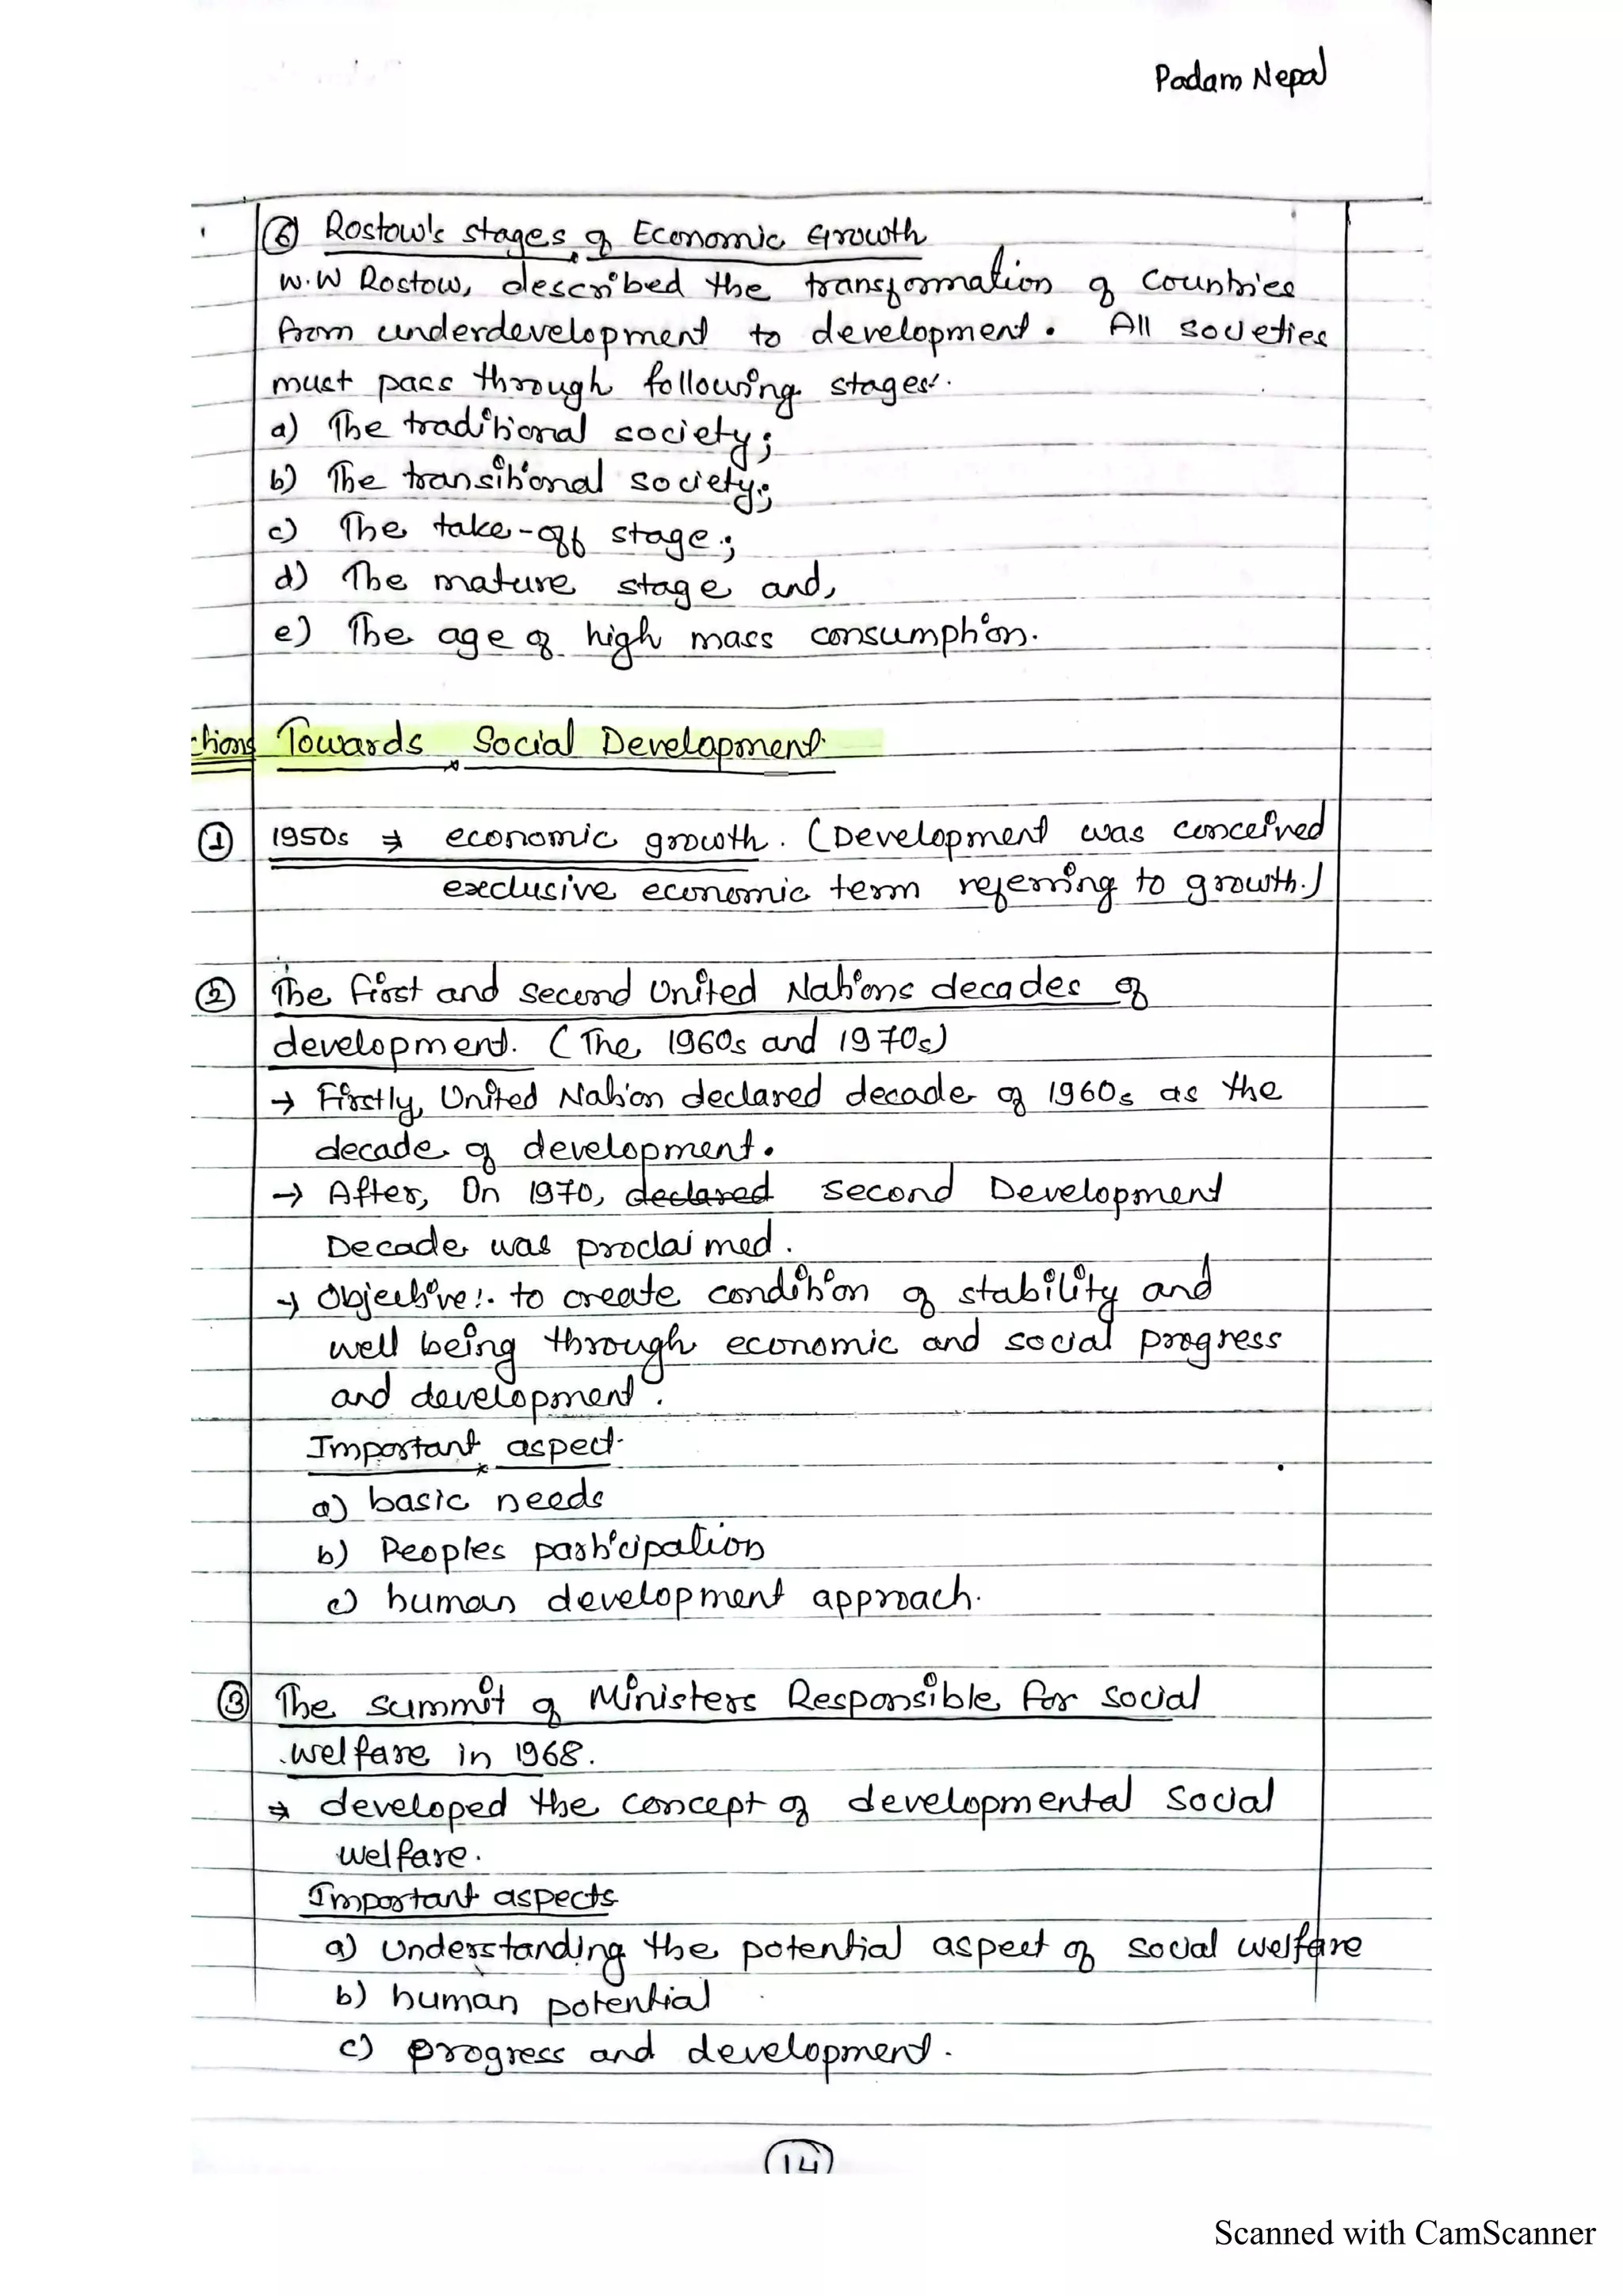 Padam Nepal
⑥ Rostow's stages of Economic Growth
W.W Rostow, described the transformation of countries
from underdevelopment to development. All societies
must pass through following stages:.
a) The traditional society;
b) The transitional society;
c) The take-off stage;
d) The mature stage and,
e) The age of high mass consumption.
Towards Social Development
① 1950s → economic growth. (Development was conceived
exclusive economic term referring to growth.)
② The first and second United Nations decades of
development. (The 1960s and 1970s)
→ Firstly, United Nation declared decade of 1960s as the
decade of development.
→ After, On 1970, declared second Development
Decade was proclaimed.
→ Objective:. to create condition of stability and
well being through economic and social progress
and development.
Important aspect
a) basic needs
b) Peoples participation
c) human development approach.
③ The summit of Ministers Responsible for social
welfare in 1968.
→ developed the concept of developmental social
welfare.
Important aspects
a) Understanding the potential aspect of social welfare
b) human potential
c) progress and development.
14
Scanned with CamScanner